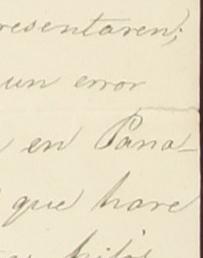 resentaren;
un error
en Pana-
que hare